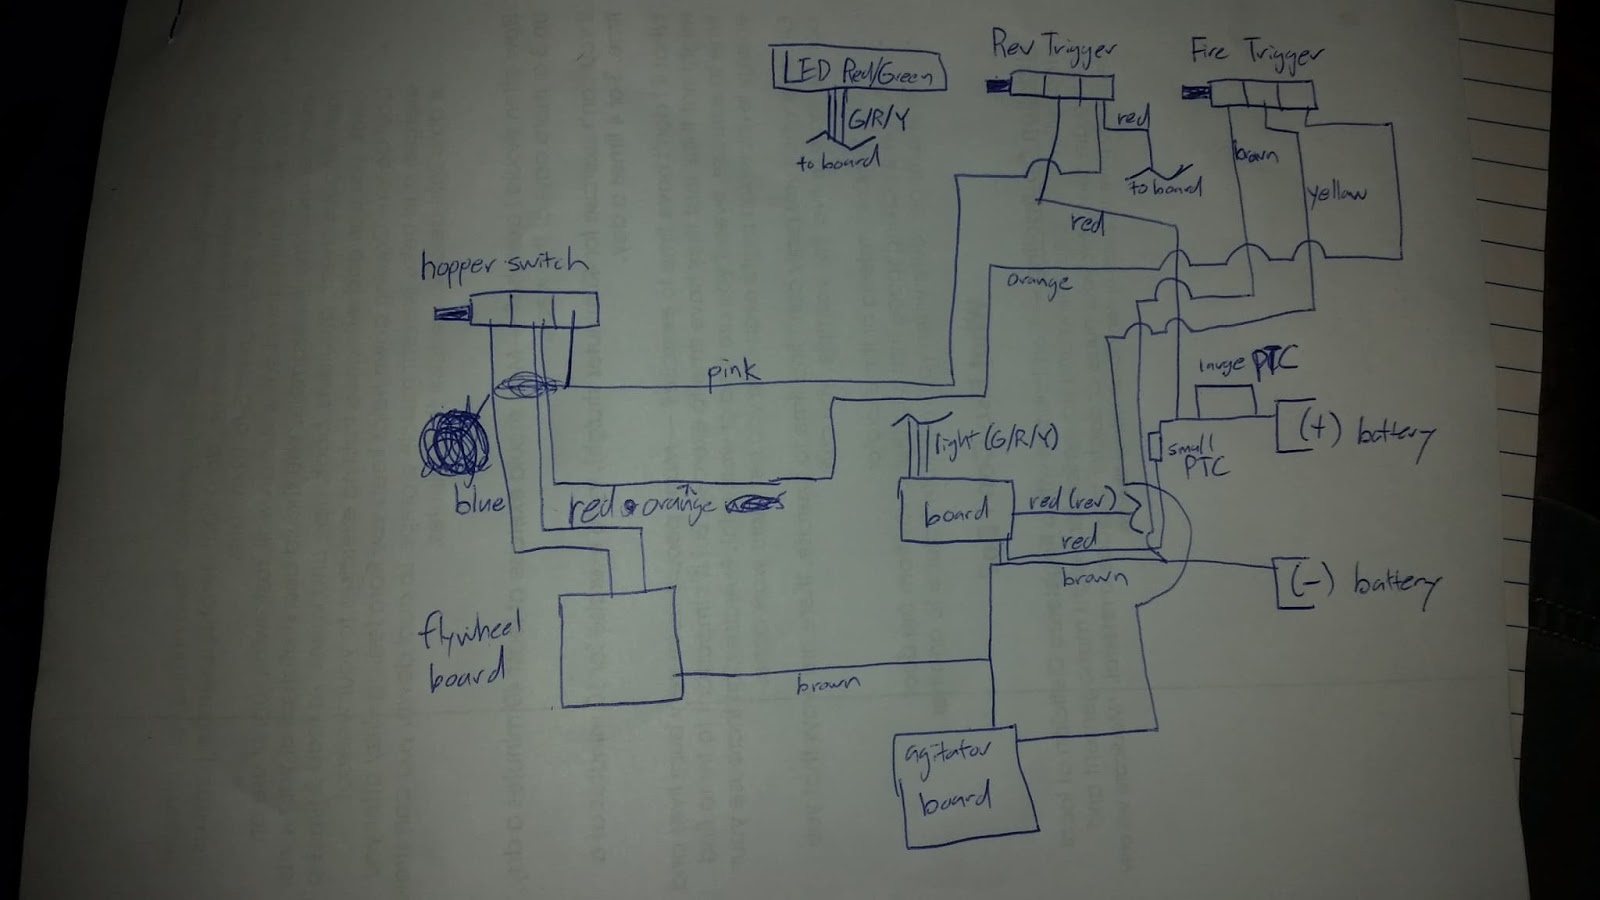 LED Red/Green
G/R/Y
to board
Rev Trigger
red
to board
red
Fire Trigger
brown
yellow
orange
hopper switch
pink
blue
red orange
large PTC
(+) battery
small
PTC
light (G/R/Y)
board
red (rev)
red
brown
(-) battery
flywheel
board
brown
agitator
board